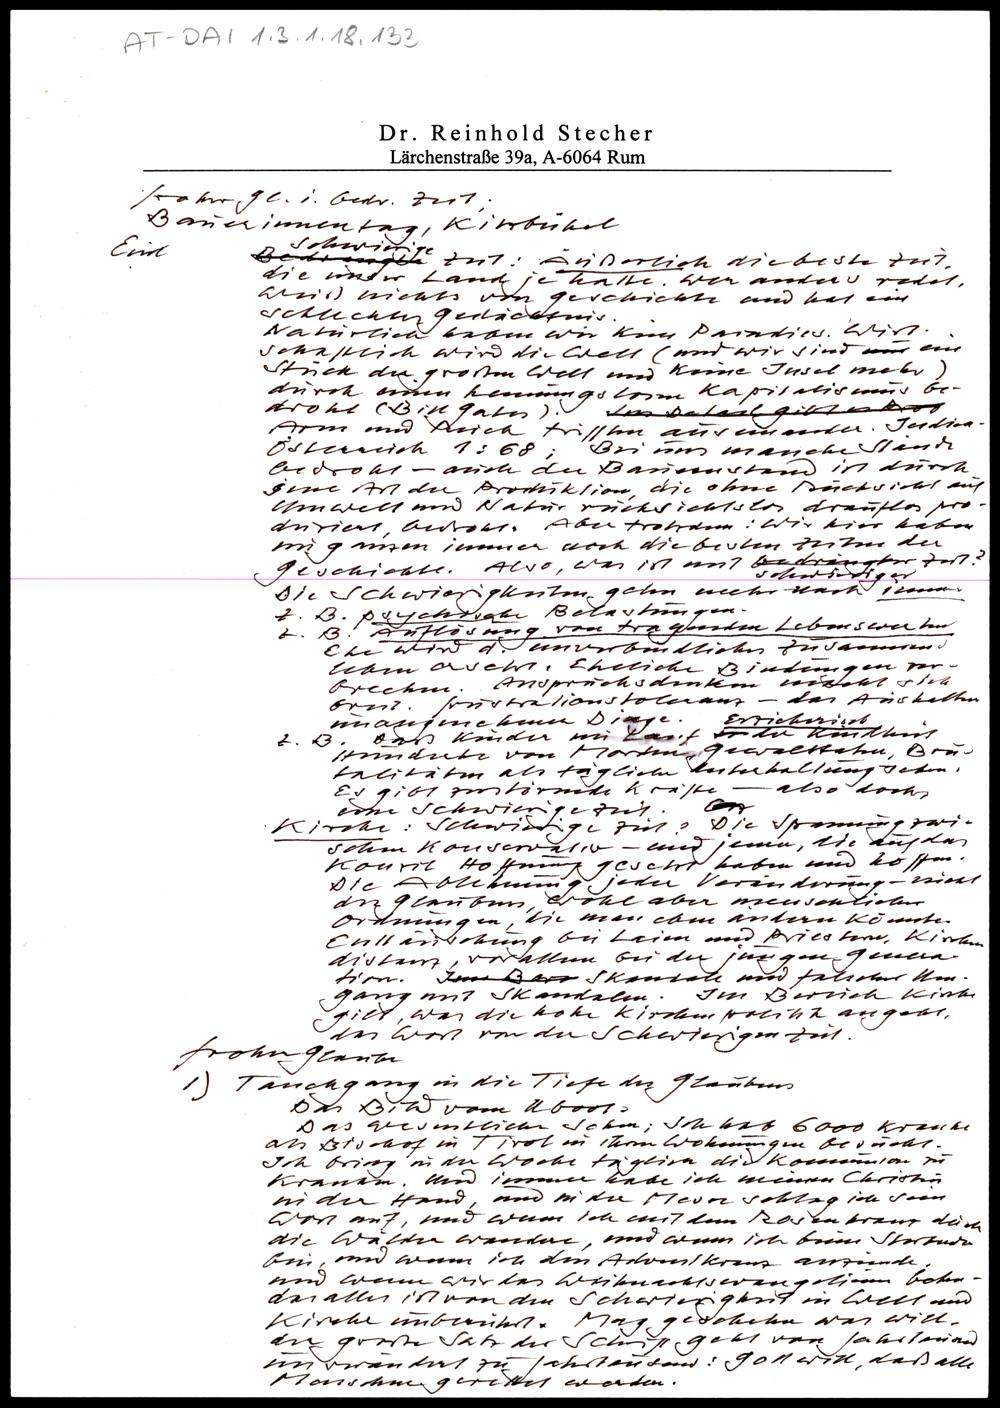 AT-DAI 1.3.1.18.132
Dr. Reinhold Stecher
Lärchenstraße 39a, A-6064 Rum
froher Gl. i. bedr. Zeit;
Bäuerinnentag, Kitzbühel
Einl
schwierige
Bedrängte Zeit: Äußerlich die beste Zeit,
die unser Land je hatte. Wer anders redet,
weiß nichts von Geschichte und hat ein
schlechtes Gedächtnis.
Natürlich haben wir kein Paradies. Wirt-
schaftlich wird die Welt (und wir sind nur ein
Stück der großen Welt und keine Insel mehr)
durch einen hemmungslosen Kapitalismus be-
droht (Bill Gates).
Arm und Reich triften auseinander. Indien-
Österreich 1:68; Bei uns manche Stände
bedroht – auch der Bauernstand ist durch
jene Art der Produktion, die ohne Rücksicht auf
Umwelt und Natur rücksichtslos drauflos pro-
duziert, bedroht. Aber trotzdem: Wir hier haben
im ganzen immer noch die besten Zeiten der
Geschichte. Also, was ist mit bedrängter Zeit?
schwieriger
Die Schwierigkeiten gehn mehr nach innen.
z. B. psychische Belastungen.
z. B. Auflösung von tragenden Lebenswerten
Ehe wird d. unverbindliches Zusammen-
leben ersetzt. Eheliche Bindungen zer-
brechen. Anspruchsdenken macht sich
breit. Frustrationstoleranz – das Aushalten
unangenehmer Dinge.
Erzieherisch
z. B. Daß Kinder im Lauf der Kindheit
Hunderte von Morden, Gewalttaten, Bru-
talitäten als tägliche Unterhaltung sehn.
Es gibt zerstörende Kräfte – also doch
eine schwierige Zeit.
Kirche: Schwierige Zeit? Die Spannung zwi-
schen Konservativ – und jenen, die auf das
Konzil Hoffnung gesetzt haben und hoffen.
Die Ablehnung jeder Veränderung – nicht
des Glaubens, wohl aber menschlicher
Ordnungen, die man eben ändern könnte.
Enttäuschung bei Laien und Priestern, Kirchen
distanz, vor allem bei der jungen Genera-
tion. Skandale und falscher Um-
gang mit Skandalen. Im Bereich Kirche
gilt, was die hohe Kirchenpolitik angeht,
das Wort von der schwierigen Zeit.
froher Glaube
1) Tauchgang in die Tiefe des Glaubens
Das Bild vom Uboot:
Das Wesentliche sehn; Ich hab 6000 Kranke
als Bischof in Tirol in ihren Wohnungen besucht.
Ich bring in der Woche täglich die Kommunion zu
Kranken. Und immer habe ich meinen Christus
in der Hand, und in der Messe schlag ich sein
Wort auf, und wenn ich mit dem Rosenkranz durch
die Wälder wandere, und wenn ich beim Sterbenden
bin, und wenn ich den Adventkranz anzünde,
und wenn wir das Weihnachtsevangelium beten –
das alles ist von den Schwierigkeit in Welt und
Kirche unberührt. Mag geschehn was will.
der große Satz der Schrift geht von Jahrtausend
unverändert zu Jahrtausend: Gott will, daß alle
Menschen gerettet werden.